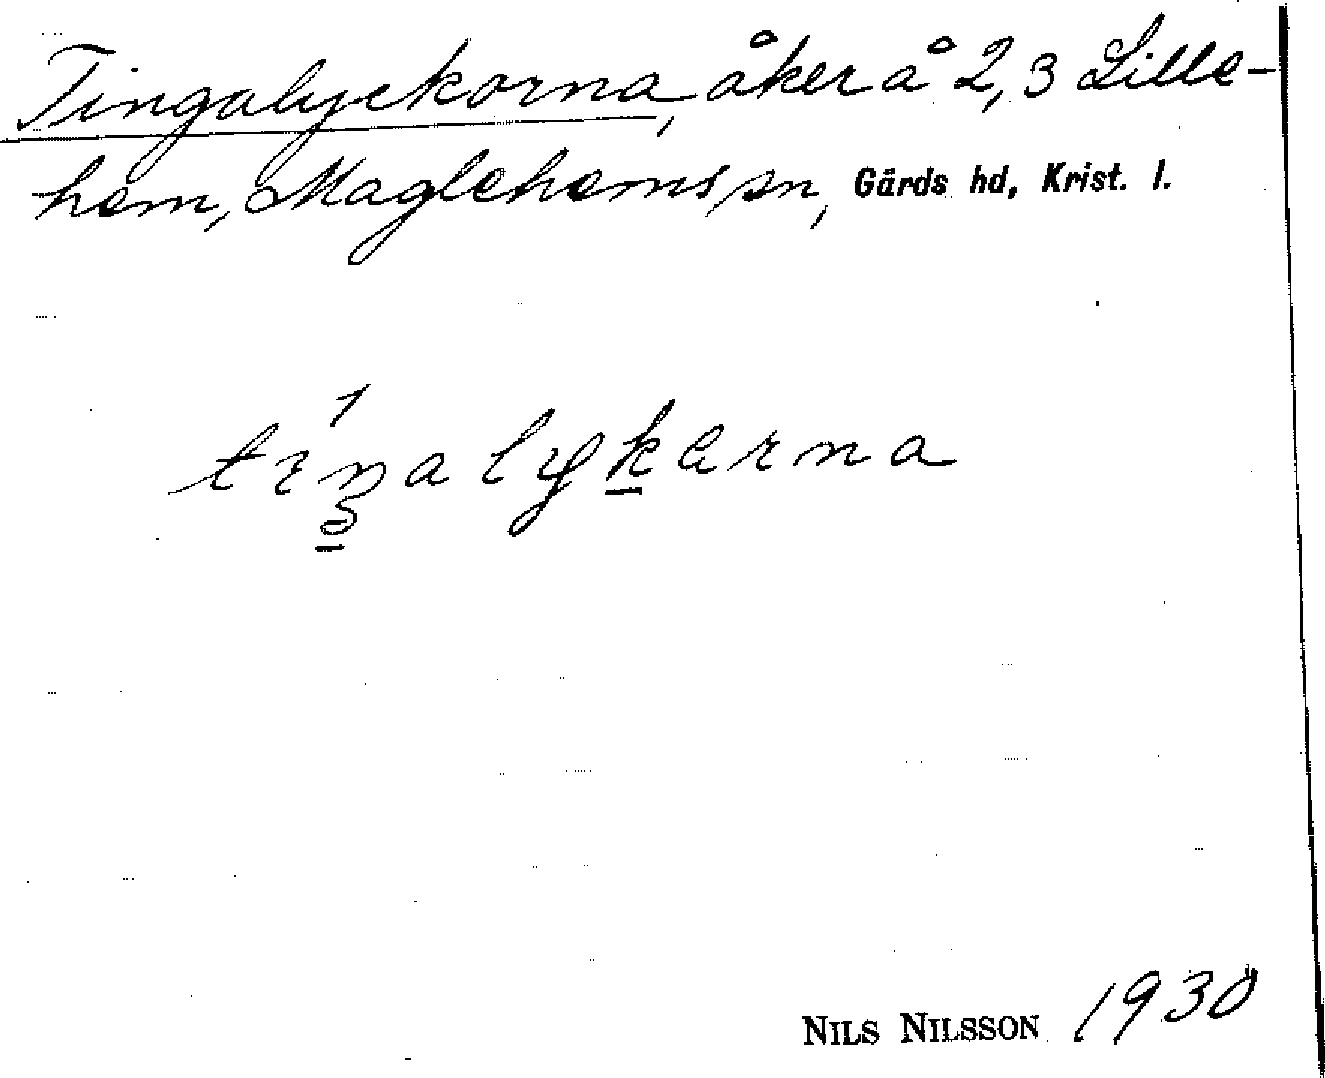 Tingalyckorna, åker å 2, 3 Lille-
hem, Maglehems sn, Gärds hd, Krist. l.
tıŋalykarna
NILS NILSSON 1930